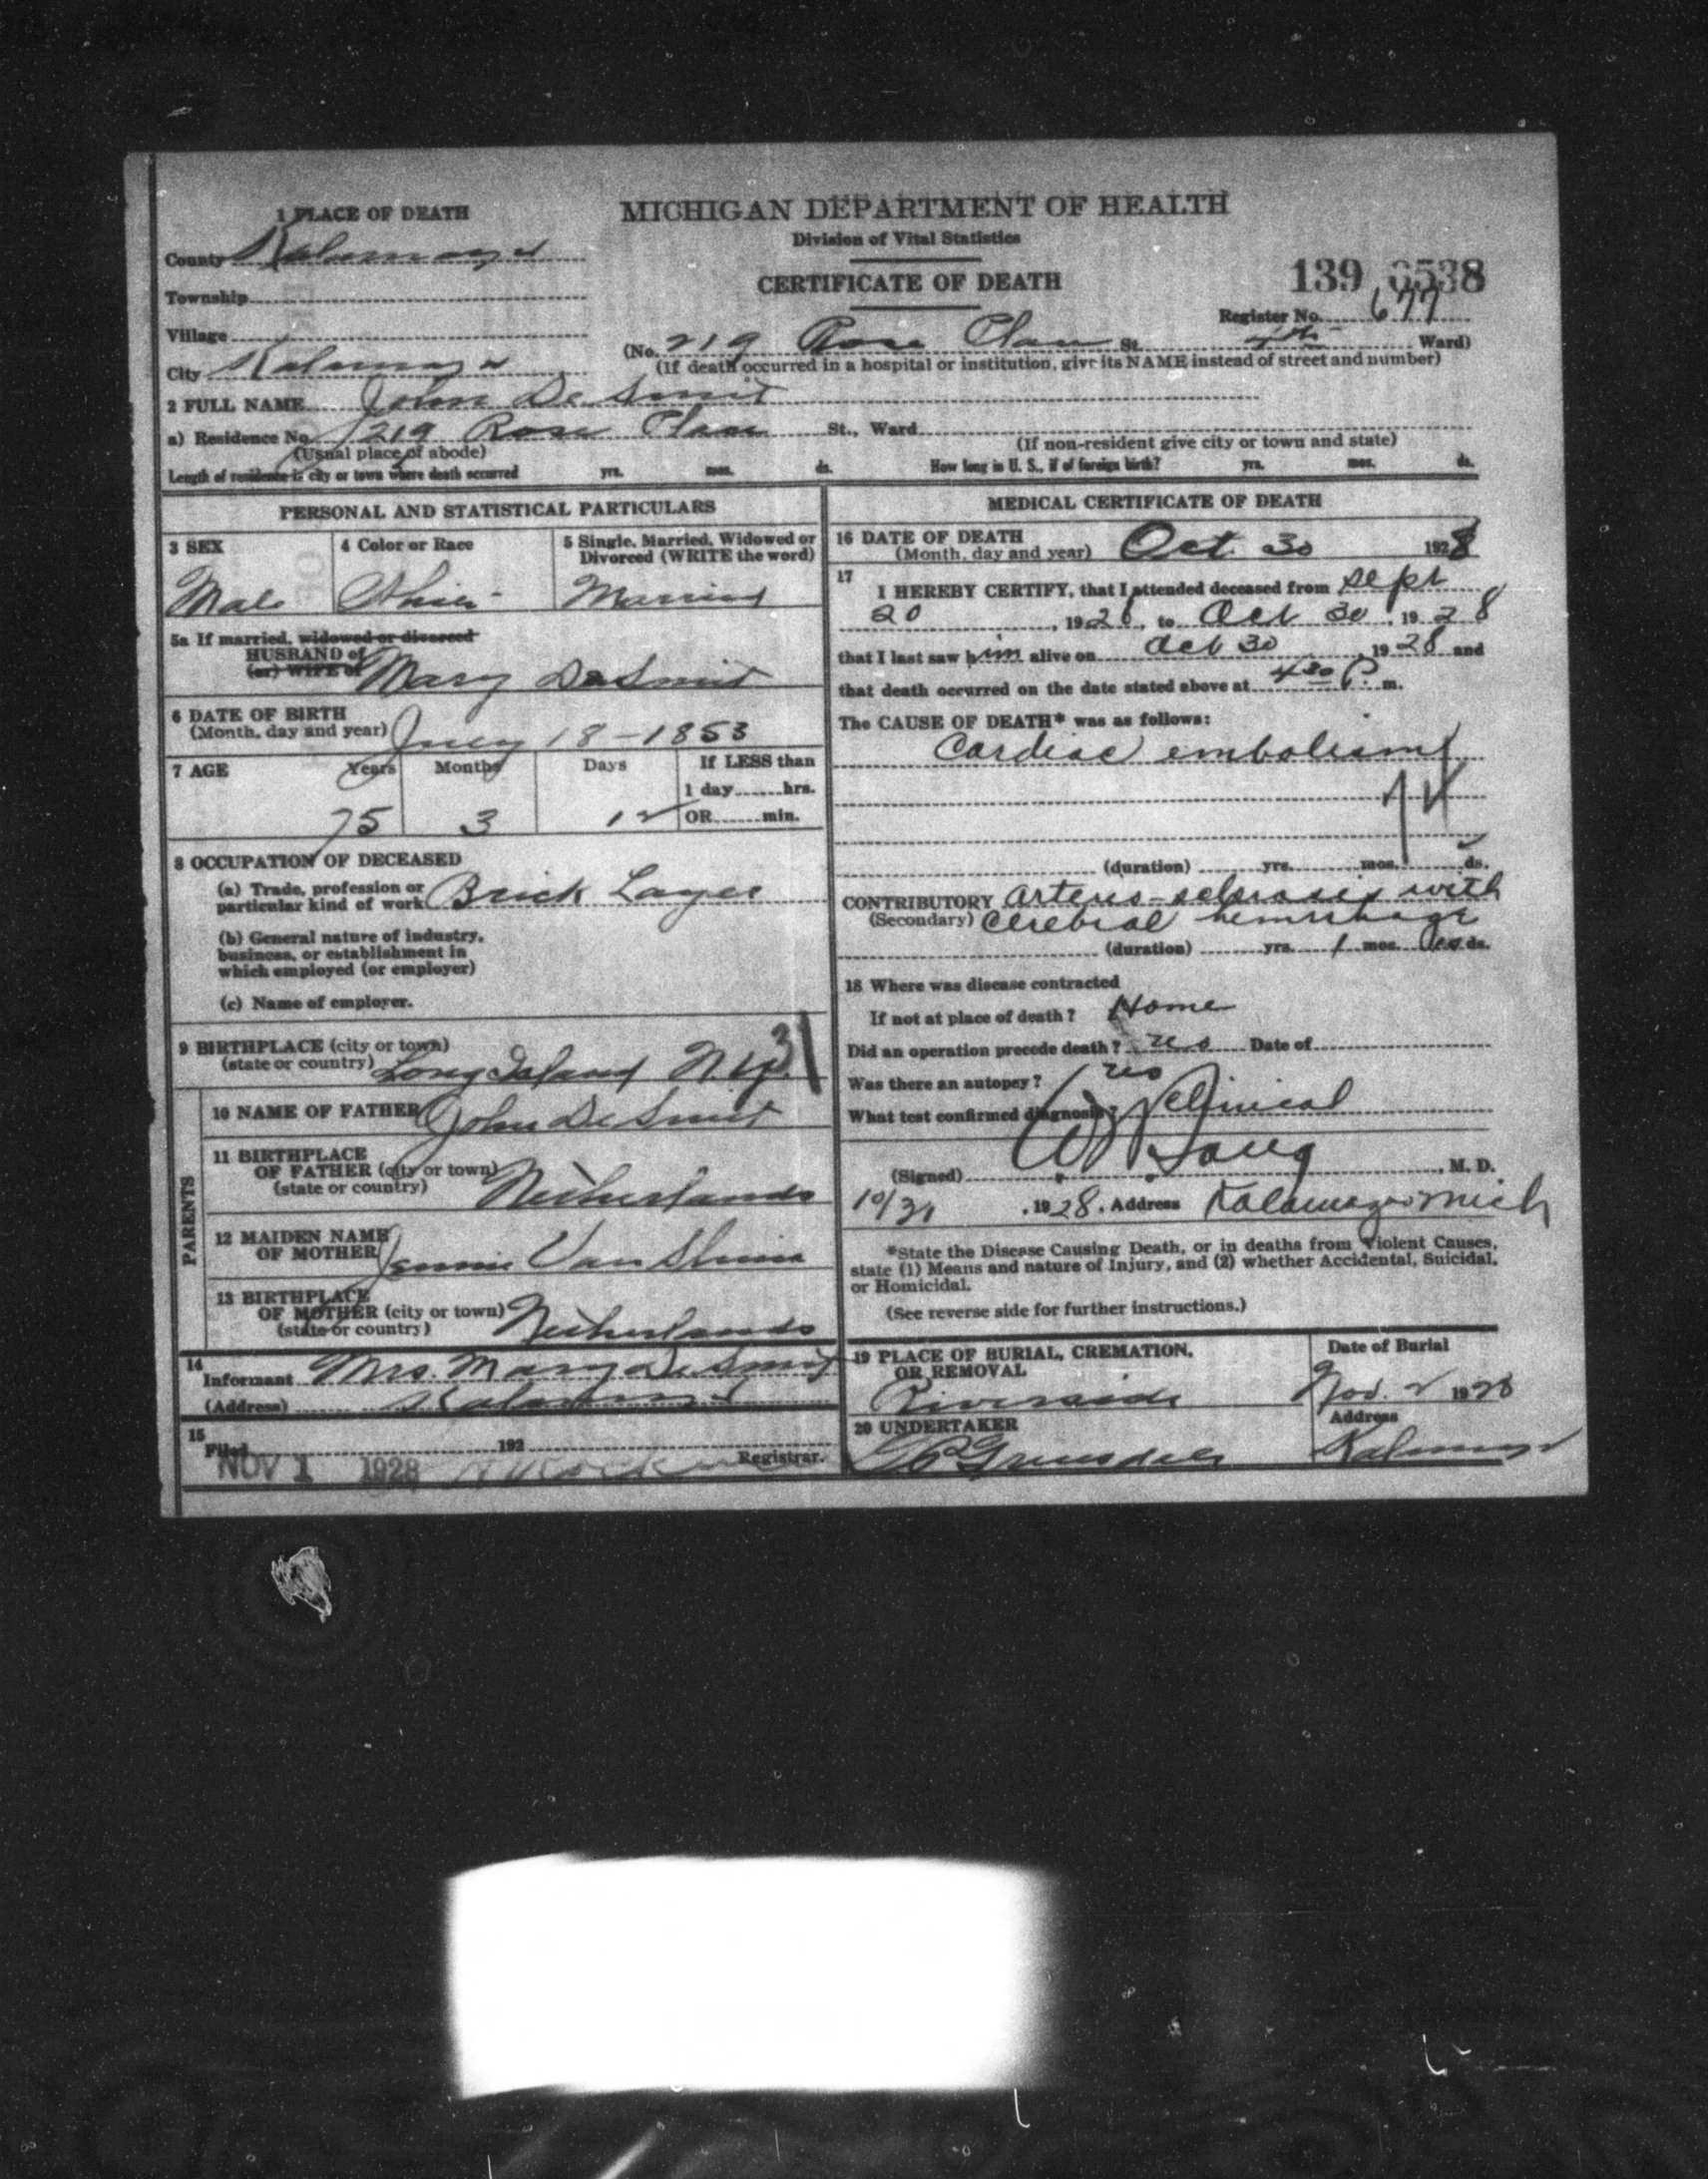 1 PLACE OF DEATH
MICHIGAN DEPARTMENT OF HEALTH
Division of Vital Statistics
CERTIFICATE OF DEATH
County Kalamazoo
Township
Village
City Kalamazoo
139 6538
Register No. 677
(No. 219 Rose Place St. 4th Ward)
(If death occurred in a hospital or institution, give its NAME instead of street and number)
2 FULL NAME John De Smit
a) Residence No. 219 Rose Place St., Ward
(Usual place of abode)
(If non-resident give city or town and state)
Length of residence in city or town where death occurred yrs. mos. ds. How long in U. S., if of foreign birth? yrs. mos. ds.
PERSONAL AND STATISTICAL PARTICULARS
3 SEX
Male
4 Color or Race
White
5 Single, Married, Widowed or
Divorced (WRITE the word)
Married
5a If married, widowed or divorced
HUSBAND of
(or) WIFE of
Mary DeSmit
6 DATE OF BIRTH
(Month, day and year) July 18-1853
7 AGE Years Months Days If LESS than
1 day hrs.
75 3 12 OR min.
8 OCCUPATION OF DECEASED
(a) Trade, profession or
particular kind of work Brick Layer
(b) General nature of industry,
business, or establishment in
which employed (or employer)
(c) Name of employer.
9 BIRTHPLACE (city or town)
(state or country) Long Island N.Y. 31
PARENTS
10 NAME OF FATHER John De Smit
11 BIRTHPLACE
OF FATHER (city or town)
(state or country) Netherlands
12 MAIDEN NAME
OF MOTHER Jennie Van
13 BIRTHPLACE
OF MOTHER (city or town)
(state or country) Netherlands
14
Informant Mrs. Mary De Smit
(Address) Kalamazoo
15
Filed 192
NOV 1 1928 Registrar.
MEDICAL CERTIFICATE OF DEATH
16 DATE OF DEATH
(Month, day and year) Oct. 30 1928
17
I HEREBY CERTIFY, that I attended deceased from Sept
20, 1928, to Oct 30, 1928
that I last saw him alive on Oct 30 1928 and
that death occurred on the date stated above at 4 30 P. m.
The CAUSE OF DEATH* was as follows:
Cardiac embolism
74
(duration) yrs. mos. ds.
CONTRIBUTORY arterio-sclerosis with
(Secondary) Cerebral hemorrhage
(duration) yrs. 1 mos. 10 ds.
18 Where was disease contracted
If not at place of death? Home
Did an operation precede death? no Date of
Was there an autopsy? no
What test confirmed diagnosis? Clinical
(Signed) M. D.
10/31, 1928. Address Kalamazoo Mich
*State the Disease Causing Death, or in deaths from Violent Causes,
state (1) Means and nature of Injury, and (2) whether Accidental, Suicidal,
or Homicidal.
(See reverse side for further instructions.)
19 PLACE OF BURIAL, CREMATION,
OR REMOVAL
Riverside
Date of Burial
Nov. 2 1928
20 UNDERTAKER
Address
Kalamazoo